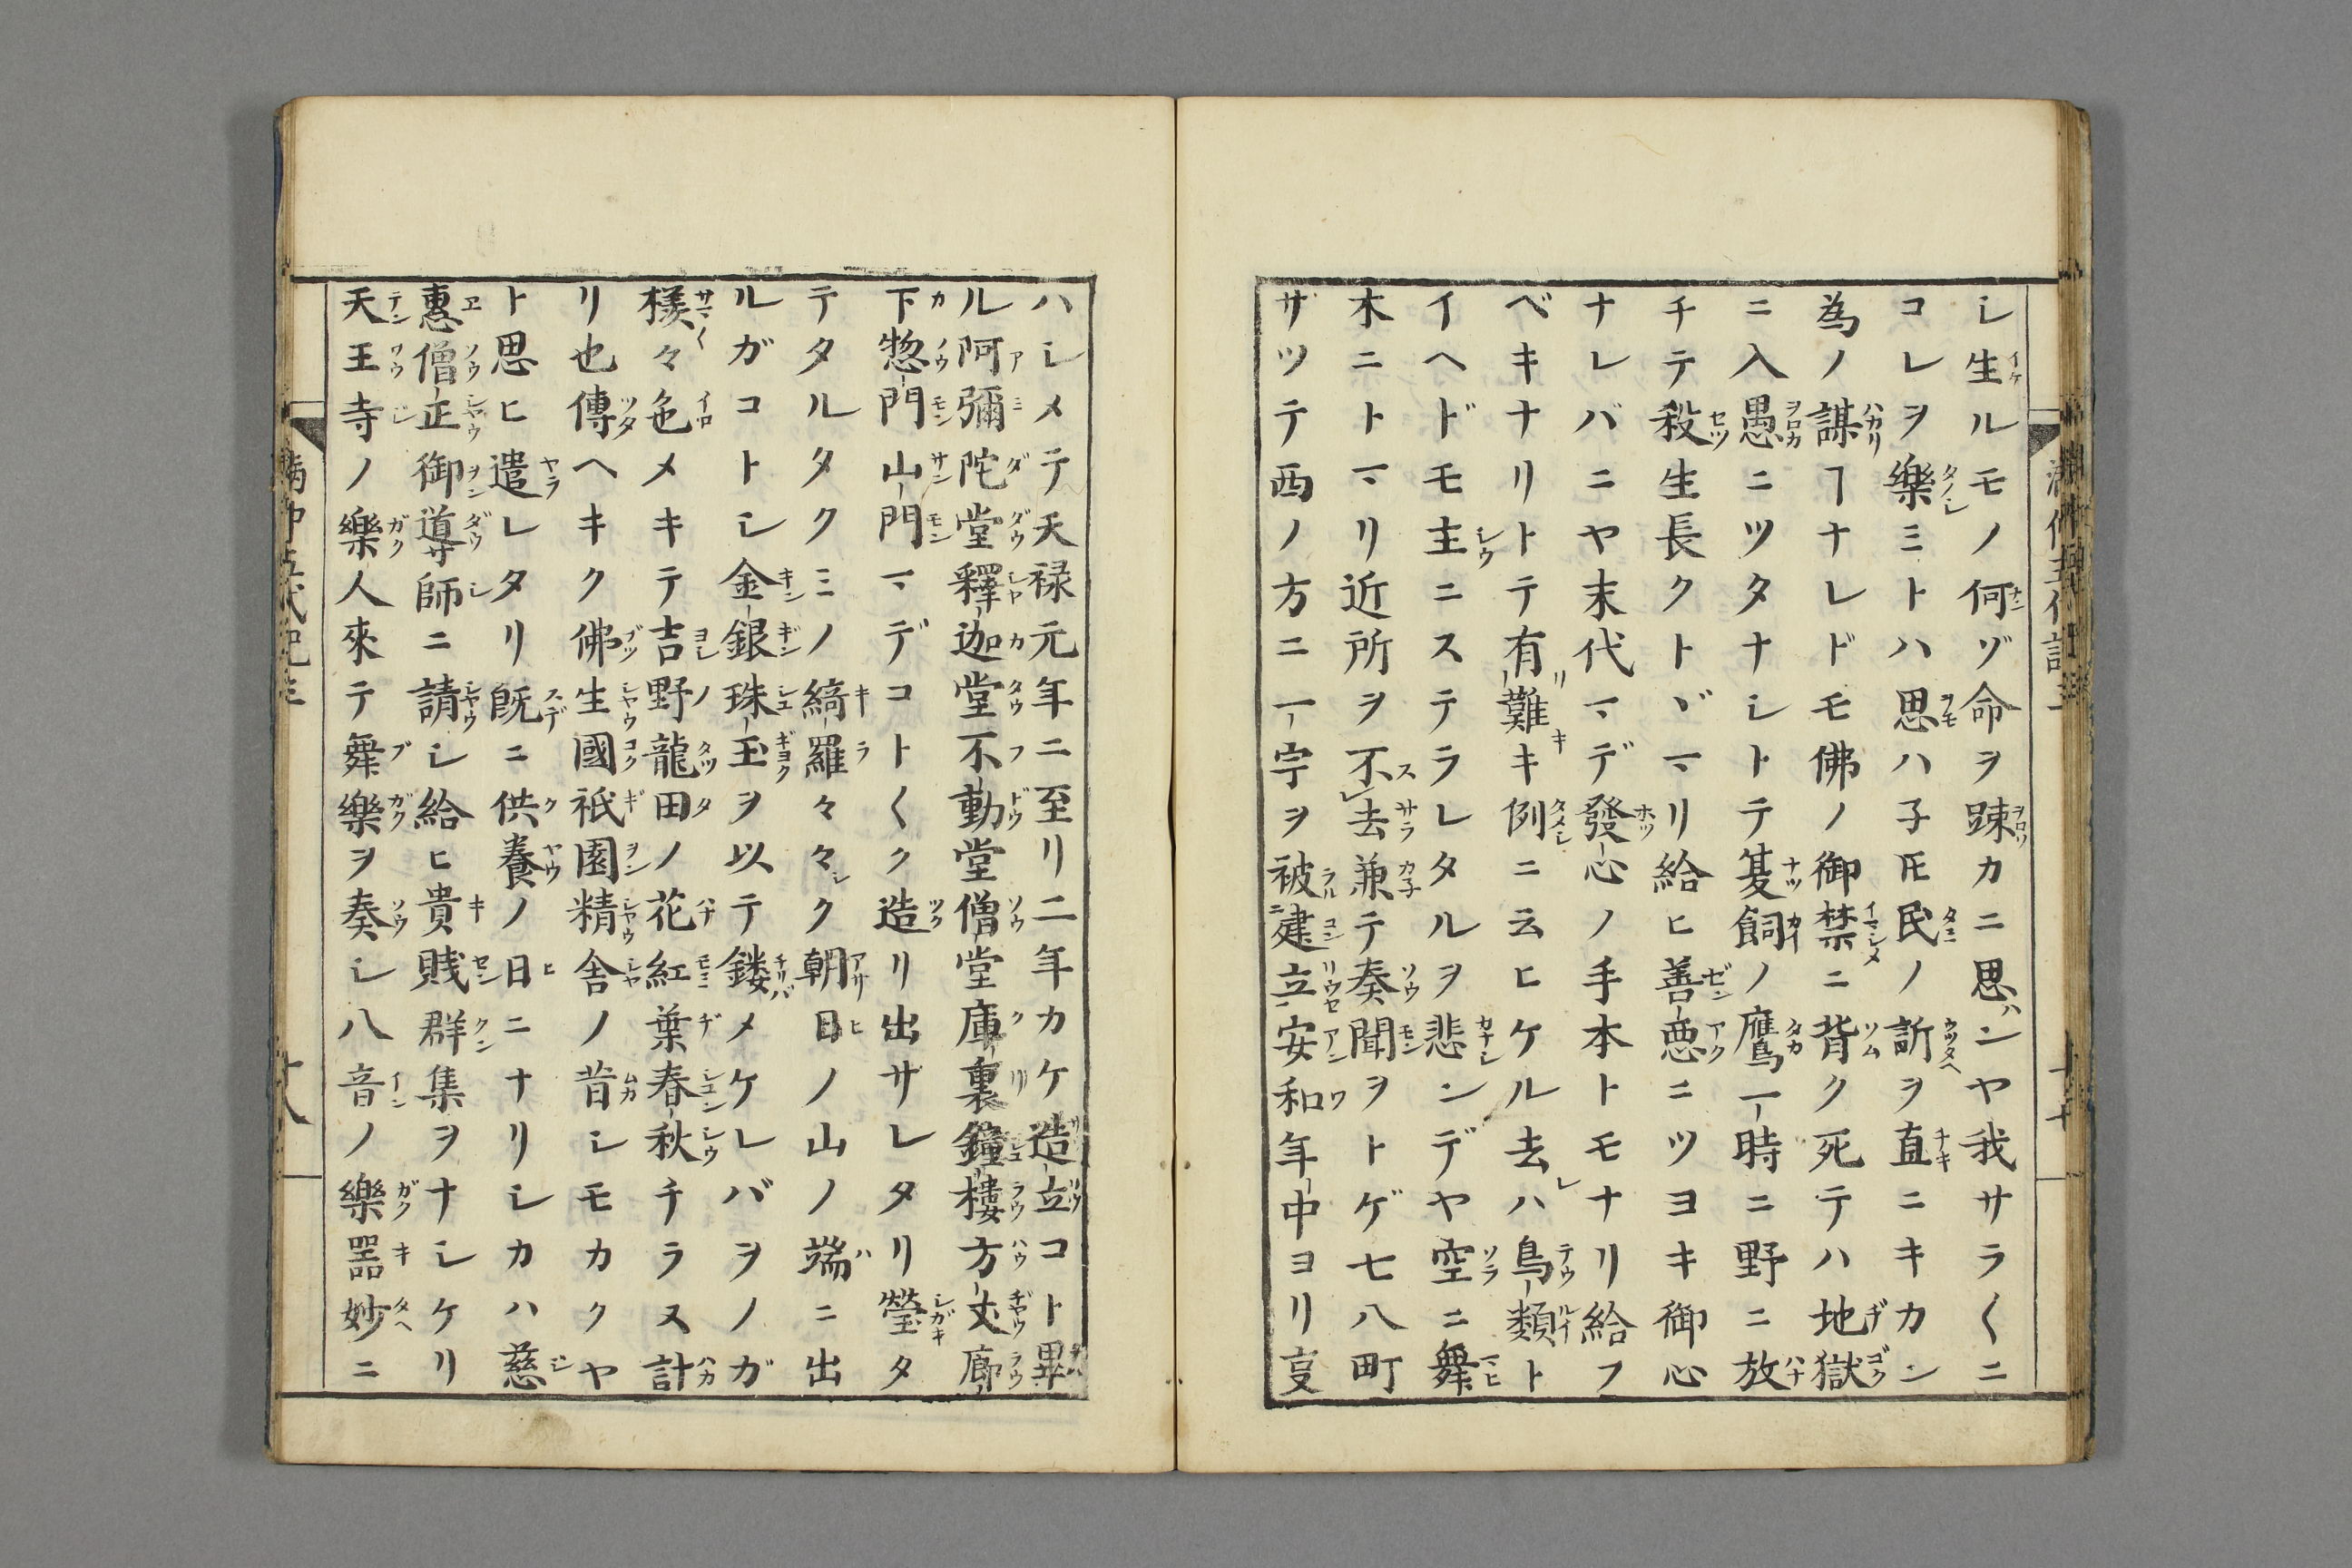 シ生ルモノ何ゾ命ヲ踈カニ思ンヤ我サラ〱ニ
コレヲ樂ミトハ思ハ子𪜈民ノ訢ヲ直ニキカン
為ノ謀ヿナレドモ佛ノ御禁ニ背ク死テハ地獄
ニ入愚ニツタナシトテ夏飼ノ鷹一時ニ野ニ放
チテ殺生長クトヾマリ給ヒ善悪ニツヨキ御心
ナレバニヤ末代マデ發心ノ手本トモナリ給フ
ベキナリトテ有難キ例ニ云ヒケル去ハ鳥類ト
イヘドモ主ニステラレタルヲ悲ンデヤ空ニ舞
木ニトマリ近所ヲ不去兼テ奏聞ヲトゲ七八町
サツテ西ノ方ニ一宇ヲ被建立安和年中ヨリ亰
ハシメテ天禄元年ニ至リ二年カケ造立コト畢
ル阿彌陀堂釋迦堂不動堂僧堂庫裏鐘樓方丈廊
下惣門山門マデコト〱ク造リ出サレタリ瑩タ
テタルタクミノ綺羅々々ク朝日ノ山ノ端ニ出
ルガコトシ金銀珠玉ヲ以テ鏤メケレバヲノガ
様々色メキテ吉野龍田ノ花紅葉春秋チラス計
リ也傳ヘキク佛生國祇園精舎ノ昔シモカクヤ
ト思ヒ遣レタリ既ニ供養ノ日ニナリシカハ慈
惠僧正御導師ニ請シ給ヒ貴賎群集ヲナシケリ
天王寺ノ樂人來テ舞樂ヲ奏シ八音ノ樂器妙ニ